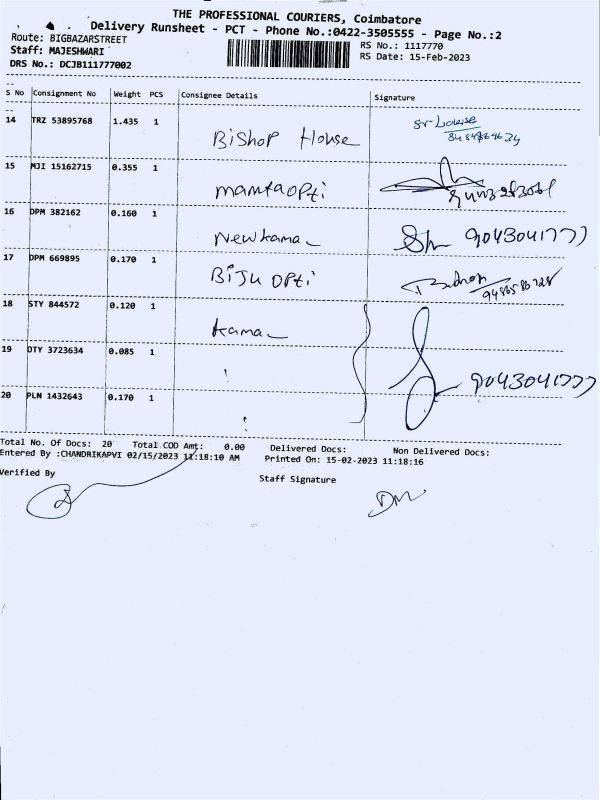 THE PROFESSIONAL COURIERS, Coimbatore
Delivery Runsheet - PCT - Phone No.:0422-3505555 - Page No.:2
Route: BIGBAZARSTREET
RS No.: 1117770
Staff: MAJESHWARI
RS Date: 15-Feb-2023
DRS No.: DCJB111777002
S No Consignment No Weight PCS Consignee Details Signature
14 TRZ 53895768 1.435 1 Bishop House
15 MJI 15162715 0.355 1 mamta opti
16 DPM 382162 0.160 1 New kama 9043041777
17 DPM 669895 0.170 1 Biju opti
18 STY 844572 0.120 1 kama
19 OTY 3723634 0.085 1 9043041777
20 PLN 1432643 0.170 1
Total No. Of Docs: 20 Total COD Amt: 0.00 Delivered Docs: Non Delivered Docs:
Entered By :CHANDRIKAPVI 02/15/2023 11:18:10 AM Printed On: 15-02-2023 11:18:16
Verified By
Staff Signature